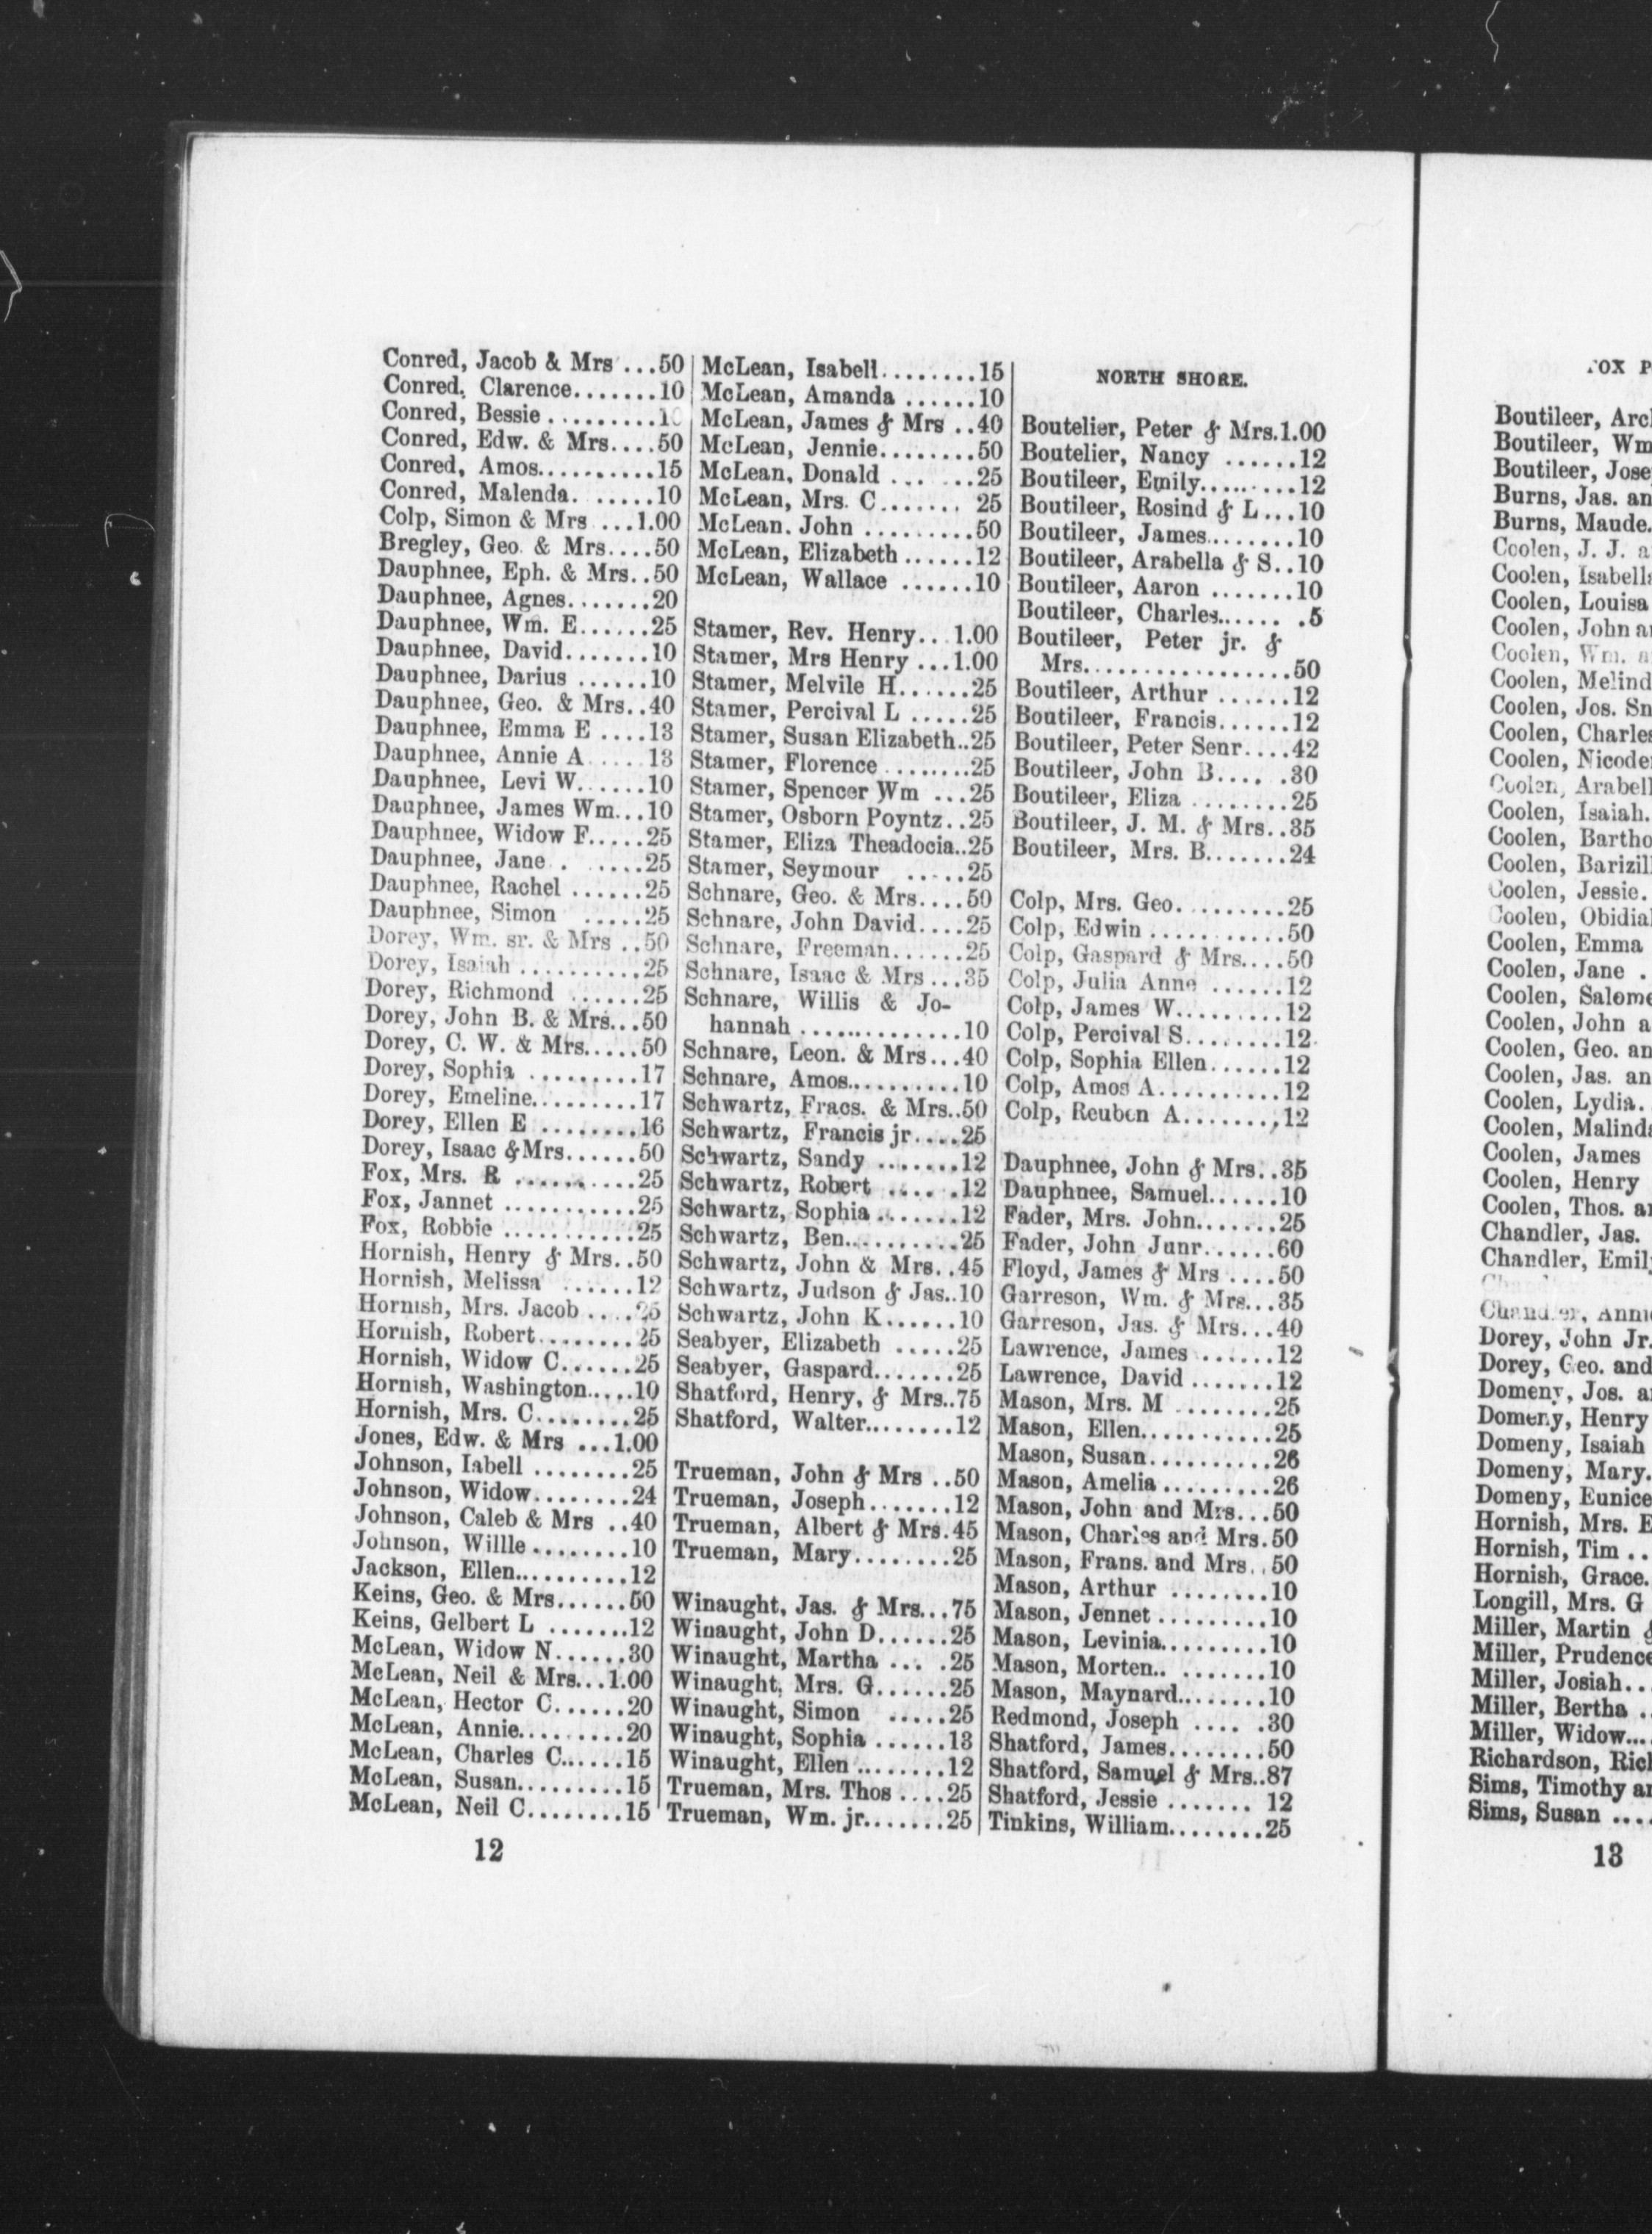 Conred, Jacob & Mrs ...50
Conred, Clarence.......10
Conred, Bessie ..........10
Conred, Edw. & Mrs....50
Conred, Amos..........15
Conred, Malenda. ......10
Colp, Simon & Mrs ...1.00
Bregley, Geo. & Mrs....50
Dauphnee, Eph. & Mrs..50
Dauphnee, Agnes.......20
Dauphnee, Wm. E......25
Dauphnee, David.......10
Dauphnee, Darius ......10
Dauphnee, Geo. & Mrs..40
Dauphnee, Emma E ....13
Dauphnee, Annie A..... 13
Dauphnee, Levi W......10
Dauphnee, James Wm...10
Dauphnee, Widow F.....25
Dauphnee, Jane . .....25
Dauphnee, Rachel ......25
Dauphnee, Simon .....25
Dorey, Wm. sr. & Mrs ..50
Dorey, Isaiah ..........25
Dorey, Richmond ......25
Dorey, John B. & Mrs...50
Dorey, C. W. & Mrs.....50
Dorey, Sophia .........17
Dorey, Emeline.........17
Dorey, Ellen E ........16
Dorey, Isaac & Mrs......50
Fox, Mrs. R ..........25
Fox, Jannet ...........25
Fox, Robbie ...........25
Hornish, Henry & Mrs..50
Hornish, Melissa ......12
Hornish, Mrs. Jacob ....25
Hornish, Robert........25
Hornish, Widow C......25
Hornish, Washington.....10
Hornish, Mrs. C........25
Jones, Edw. & Mrs ...1.00
Johnson, Iabell ........25
Johnson, Widow........24
Johnson, Caleb & Mrs ..40
Johnson, Willle ........10
Jackson, Ellen..........12
Keins, Geo. & Mrs......50
Keins, Gelbert L .......12
McLean, Widow N......30
McLean, Neil & Mrs...1.00
McLean, Hector C......20
McLean, Annie.........20
McLean, Charles C......15
McLean, Susan.........15
McLean, Neil C........15
12
McLean, Isabell........15
McLean, Amanda ......10
McLean, James & Mrs ..40
McLean, Jennie........50
McLean, Donald ... ...25
McLean, Mrs. C....... 25
McLean. John .........50
McLean, Elizabeth ......12
McLean, Wallace ......10
Stamer, Rev. Henry.. 1.00
Stamer, Mrs Henry ...1.00
Stamer, Melvile H......25
Stamer, Percival L .....25
Stamer, Susan Elizabeth..25
Stamer, Florence ........25
Stamer, Spencer Wm ...25
Stamer, Osborn Poyntz..25
Stamer, Eliza Theadocia..25
Stamer, Seymour .....25
Schnare, Geo. & Mrs....50
Schnare, John David....25
Schnare, Freeman......25
Schnare, Isaac & Mrs ...35
Schnare, Willis & Jo-
hannah ..............10
Schnare, Leon. & Mrs...40
Schnare, Amos..........10
Schwartz, Fracs. & Mrs..50
Schwartz, Francis jr....25
Schwartz, Sandy .......12
Schwartz, Robert ..... .12
Schwartz, Sophia .......12
Schwartz, Ben..........25
Schwartz, John & Mrs..45
Schwartz, Judson & Jas..10
Schwartz, John K......10
Seabyer, Elizabeth .....25
Seabyer, Gaspard.......25
Shatford, Henry, & Mrs..75
Shatford, Walter........12
Trueman, John & Mrs ..50
Trueman, Joseph.......12
Trueman, Albert & Mrs.45
Trueman, Mary........25
Winaught, Jas. & Mrs...75
Winaught, John D......25
Winaught, Martha ... .25
Winaught, Mrs. G......25
Winaught, Simon .....25
Winaught, Sophia ......13
Winaught, Ellen ........12
Trueman, Mrs. Thos ....25
Trueman, Wm. jr.......25
NORTH SHORE.
Boutelier, Peter & Mrs.1.00
Boutelier, Nancy ......12
Boutileer, Emily.........12
Boutileer, Rosind & L ...10
Boutileer, James........10
Boutileer, Arabella & S..10
Boutileer, Aaron .......10
Boutileer, Charles...... .5
Boutileer, Peter jr. &
Mrs..................50
Boutileer, Arthur ......12
Boutileer, Francis......12
Boutileer, Peter Senr....42
Boutileer, John B.... .30
Boutileer, Eliza ........25
Boutileer, J. M. & Mrs..35
Boutileer, Mrs. B.......24
Colp, Mrs. Geo. ........25
Colp, Edwin ............50
Colp, Gaspard & Mrs....50
Colp, Julia Anne ......12
Colp, James W..........12
Colp, Percival S........12
Colp, Sophia Ellen......12
Colp, Amos A...........12
Colp, Reuben A........12
Dauphnee, John & Mrs..35
Dauphnee, Samuel......10
Fader, Mrs. John.......25
Fader, John Junr......60
Floyd, James & Mrs ....50
Garreson, Wm. & Mrs...35
Garreson, Jas. & Mrs...40
Lawrence, James ......12
Lawrence, David .......12
Mason, Mrs. M ........25
Mason, Ellen...........25
Mason, Susan..........26
Mason, Amelia .........26
Mason, John and Mrs...50
Mason, Charles and Mrs.50
Mason, Frans. and Mrs..50
Mason, Arthur ........10
Mason, Jennet .........10
Mason, Levinia.........10
Mason, Morten.. .......10
Mason, Maynard........10
Redmond, Joseph .... .30
Shatford, James........50
Shatford, Samuel & Mrs..87
Shatford, Jessie ....... 12
Tinkins, William........25
FOX P
Boutileer, Arc
Boutileer, Wm
Boutileer, Jose
Burns, Jas. an
Burns, Maude.
Coolen, J. J. a
Coolen, Isabella
Coolen, Louisa
Coolen, John a
Coolen, Wm. a
Coolen, Melind
Coolen, Jos. Sn
Coolen, Charles
Coolen, Nicode
Coolen, Arabell
Coolen, Isaiah.
Coolen, Bartho
Coolen, Barizil
Coolen, Jessie.
Coolen, Obidia
Coolen, Emma
Coolen, Jane .
Coolen, Salome
Coolen, John a
Coolen, Geo. an
Coolen, Jas. an
Coolen, Lydia.
Coolen, Malinda
Coolen, James
Coolen, Henry
Coolen, Thos. a
Chandler, Jas.
Chandler, Emily
Chandler, Annie
Dorey, John Jr.
Dorey, Geo. and
Domeny, Jos. a
Domeny, Henry
Domeny, Isaiah
Domeny, Mary.
Domeny, Eunice
Hornish, Mrs. E
Hornish, Tim ..
Hornish, Grace.
Longill, Mrs. G
Miller, Martin &
Miller, Prudence
Miller, Josiah..
Miller, Bertha ..
Miller, Widow...
Richardson, Rich
Sims, Timothy an
Sims, Susan ....
13